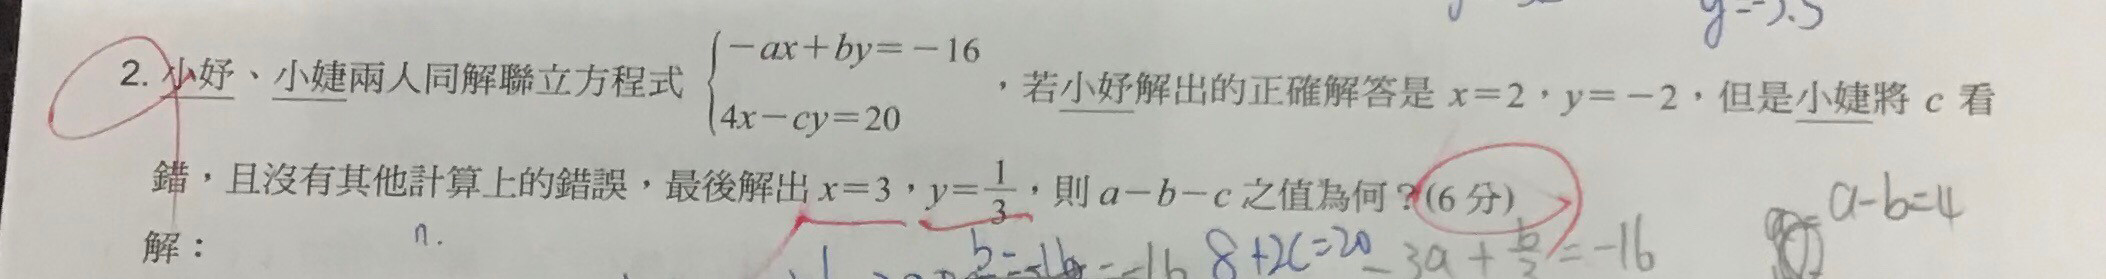 y=-3.5
2. 小妤、小婕兩人同解聯立方程式 {-ax+by=-16
4x-cy=20 ,若小妤解出的正確解答是 x=2,y=-2,但是小婕將 c 看
錯,且沒有其他計算上的錯誤,最後解出 x=3,y=1/3,則 a-b-c 之值為何?(6 分)
a-b=4
解:
n.
8+2c=20
-3a+b/3=-16